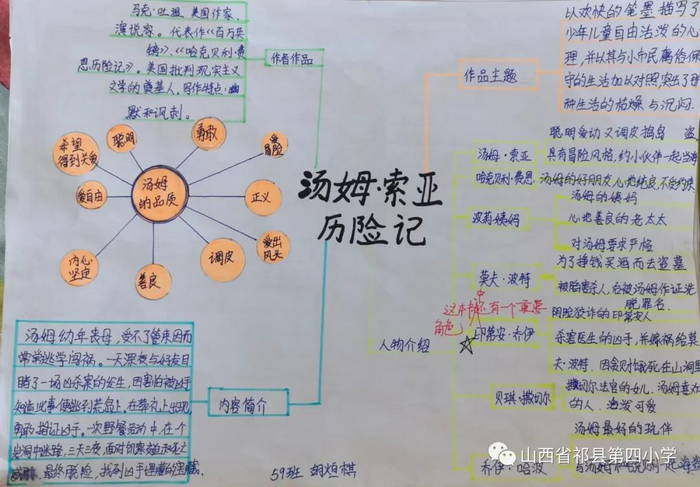 马克·吐温 美国作家、
演说家。代表作《百万英
镑》、《哈克贝利·费
恩历险记》。美国批判现实主义
文学的奠基人。写作特点·幽
默和讽刺。
作者作品
以欢快的笔墨描写了
少年儿童自由活泼的心
理，并以其与小市民庸俗保
守的生活加以对照，突出了
种生活的枯燥与沉闷。
作品主题
希望
得到关负
聪明
勇敢
爱冒险
爱自由
汤姆
的品质
正义
内心
坚定
善良
调皮
爱出
风头
汤姆·索亚
历险记
汤姆·索亚
聪明爱动又调皮捣鸟
具有冒险风格，约小伙伴一起当
哈克贝利·费恩
汤姆的好朋友，心地纯良，不受约束
波莉姨妈
汤姆的姨妈
心地善良的老太太
对汤姆要求严格
莫夫·波特
为了挣钱买酒而去盗墓
被陷害杀人，后被汤姆作证洗
脱罪名。
这本书中还有一个重要
角色
人物介绍
印第安·乔伊
阴险狡诈的印第安人
杀害医生的凶手，并嫁祸给莫
夫·波特，因害怕饿死在山洞里
贝琪·撒切尔
撒切尔法官的女儿，汤姆喜欢
的人，活泼可爱
乔伊·哈波
汤姆最好的玩伴
内容简介
汤姆幼年丧母，受不了管束因而
常常逃学闯祸。一天深夜与好友目
睹了一场凶杀案的发生，因害怕被凶手
在葬礼上出现，
一次野餐活动中，在一个
岩洞中迷路，三天三夜，面对
最终脱险，找到凶手埋藏的宝藏。
59班 胡烜棋
山西省祁县第四小学